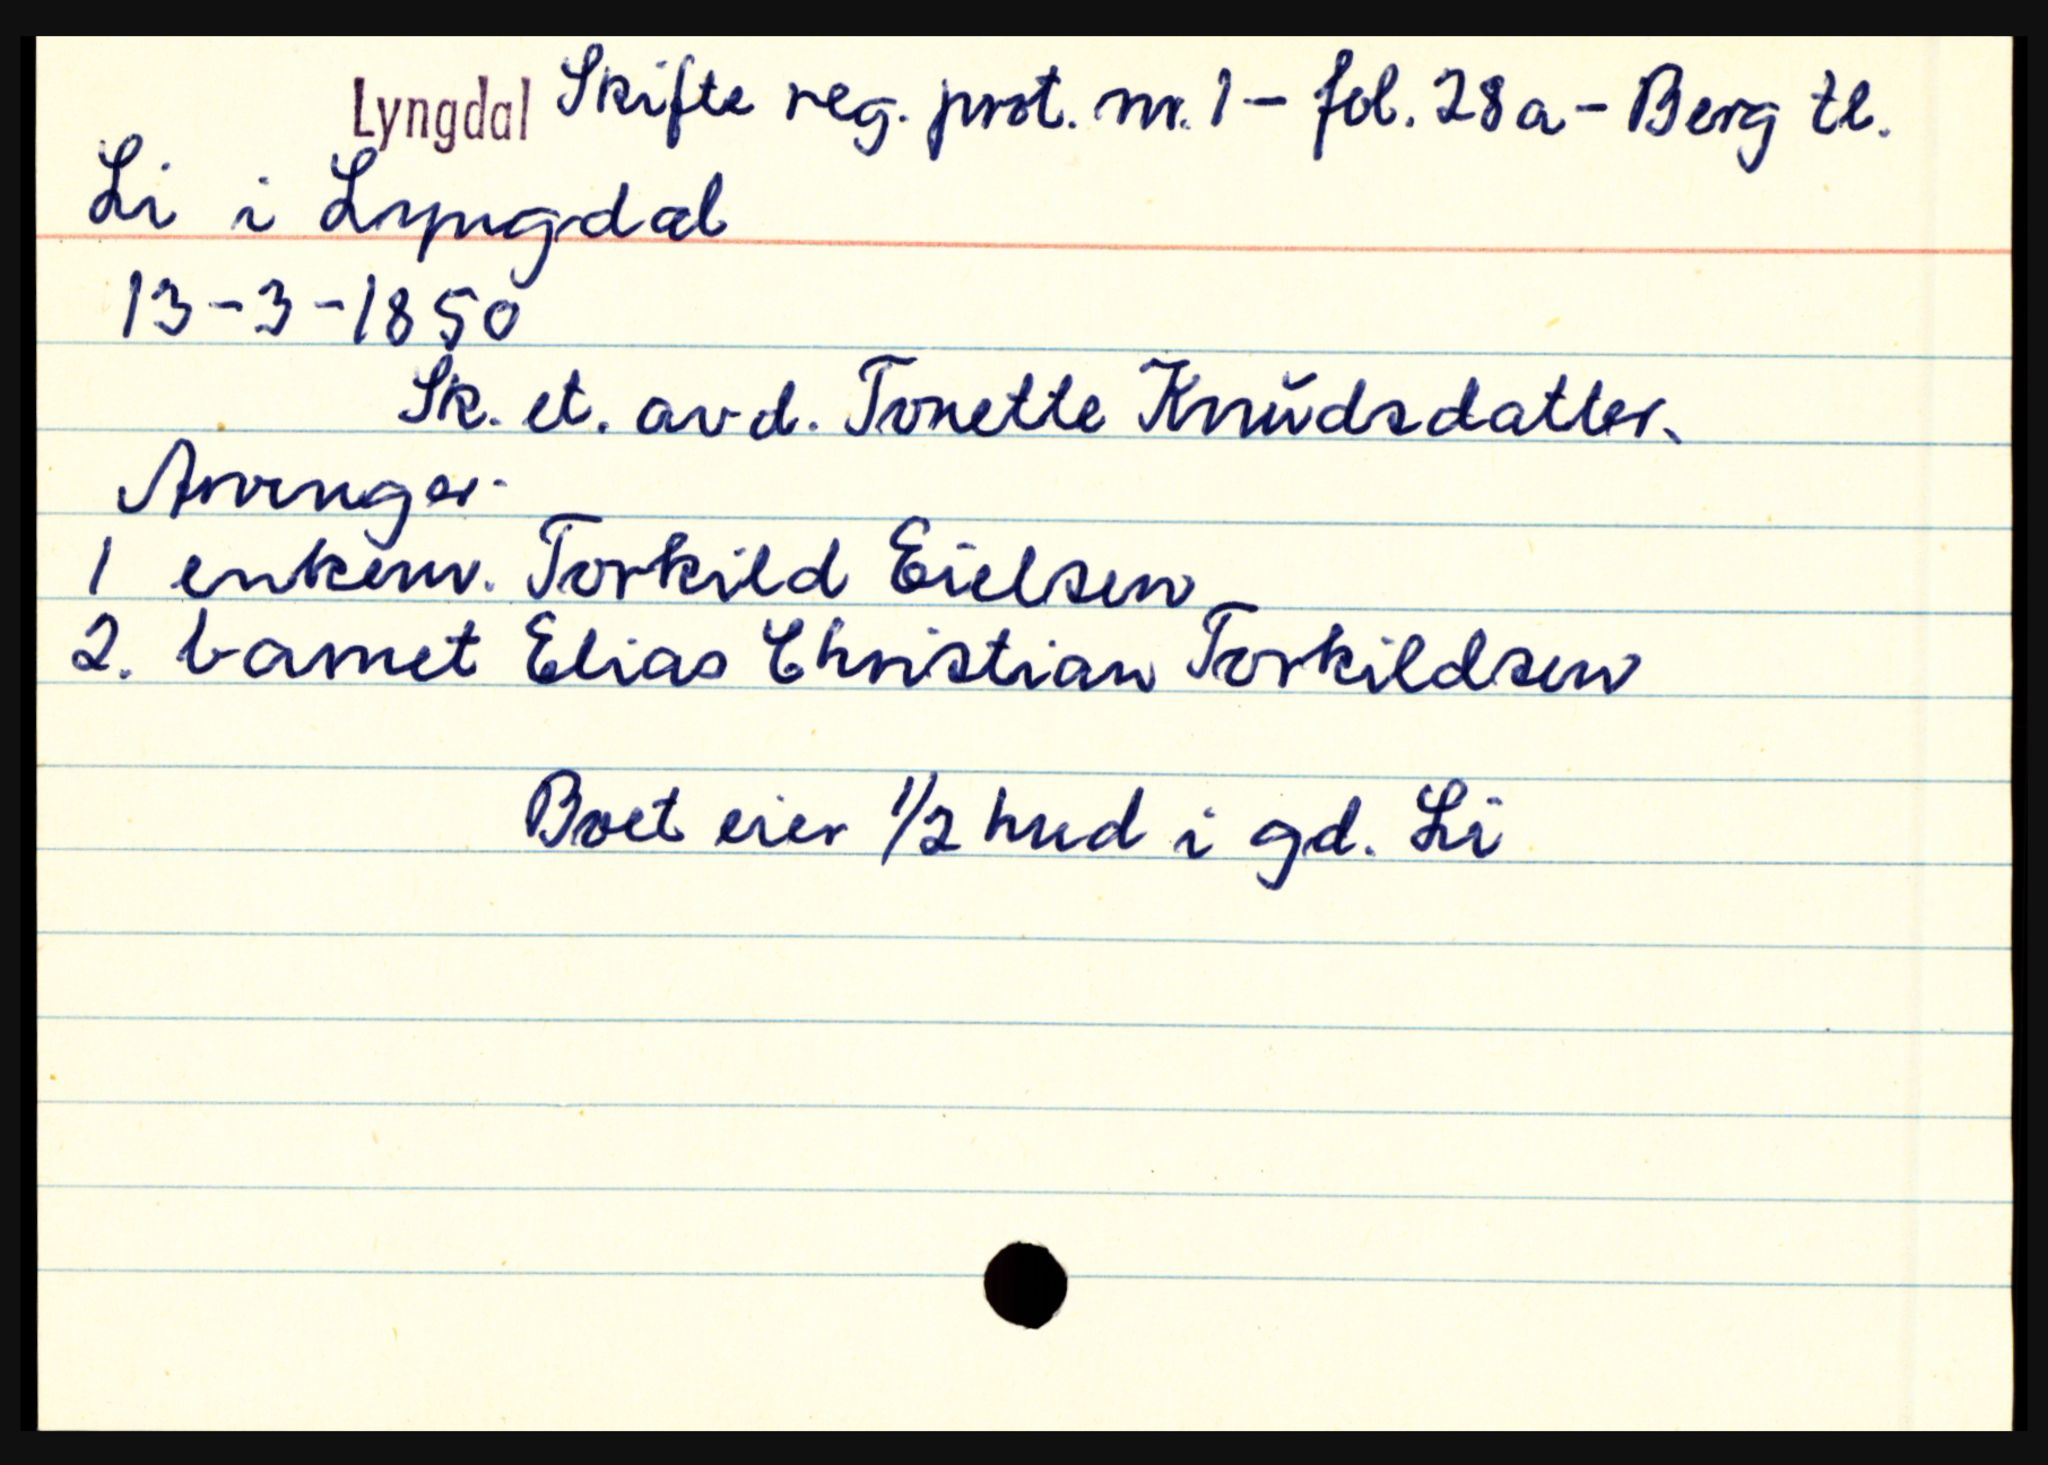 Lyngdal Skifte reg. prot. nr. 1 - fol. 28a - Berg tl.
Li i Lyngdal
13-3-1850
Sk. et. avd. Tonette Knŭdsdatter.
Arvinger.
1 enkem. Torkild Eielsen
2. barnet Elias Christian Torkildsen
Boet eier 1/2 hud i gd. Li